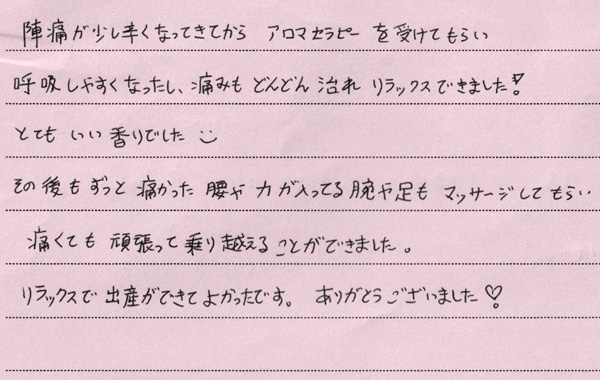 陣痛が少し辛くなってきてから アロマセラピー を受けてもらい
呼吸しやすくなったし、痛みも どんどん 治れ リラックスできました!
とても いい 香りでした
その後も ずっと 痛かった 腰や 力が入ってる 腕や足も マッサージしてもらい
痛くても 頑張って 乗り越えることができました。
リラックスで 出産ができて よかったです。 ありがとうございました♡!